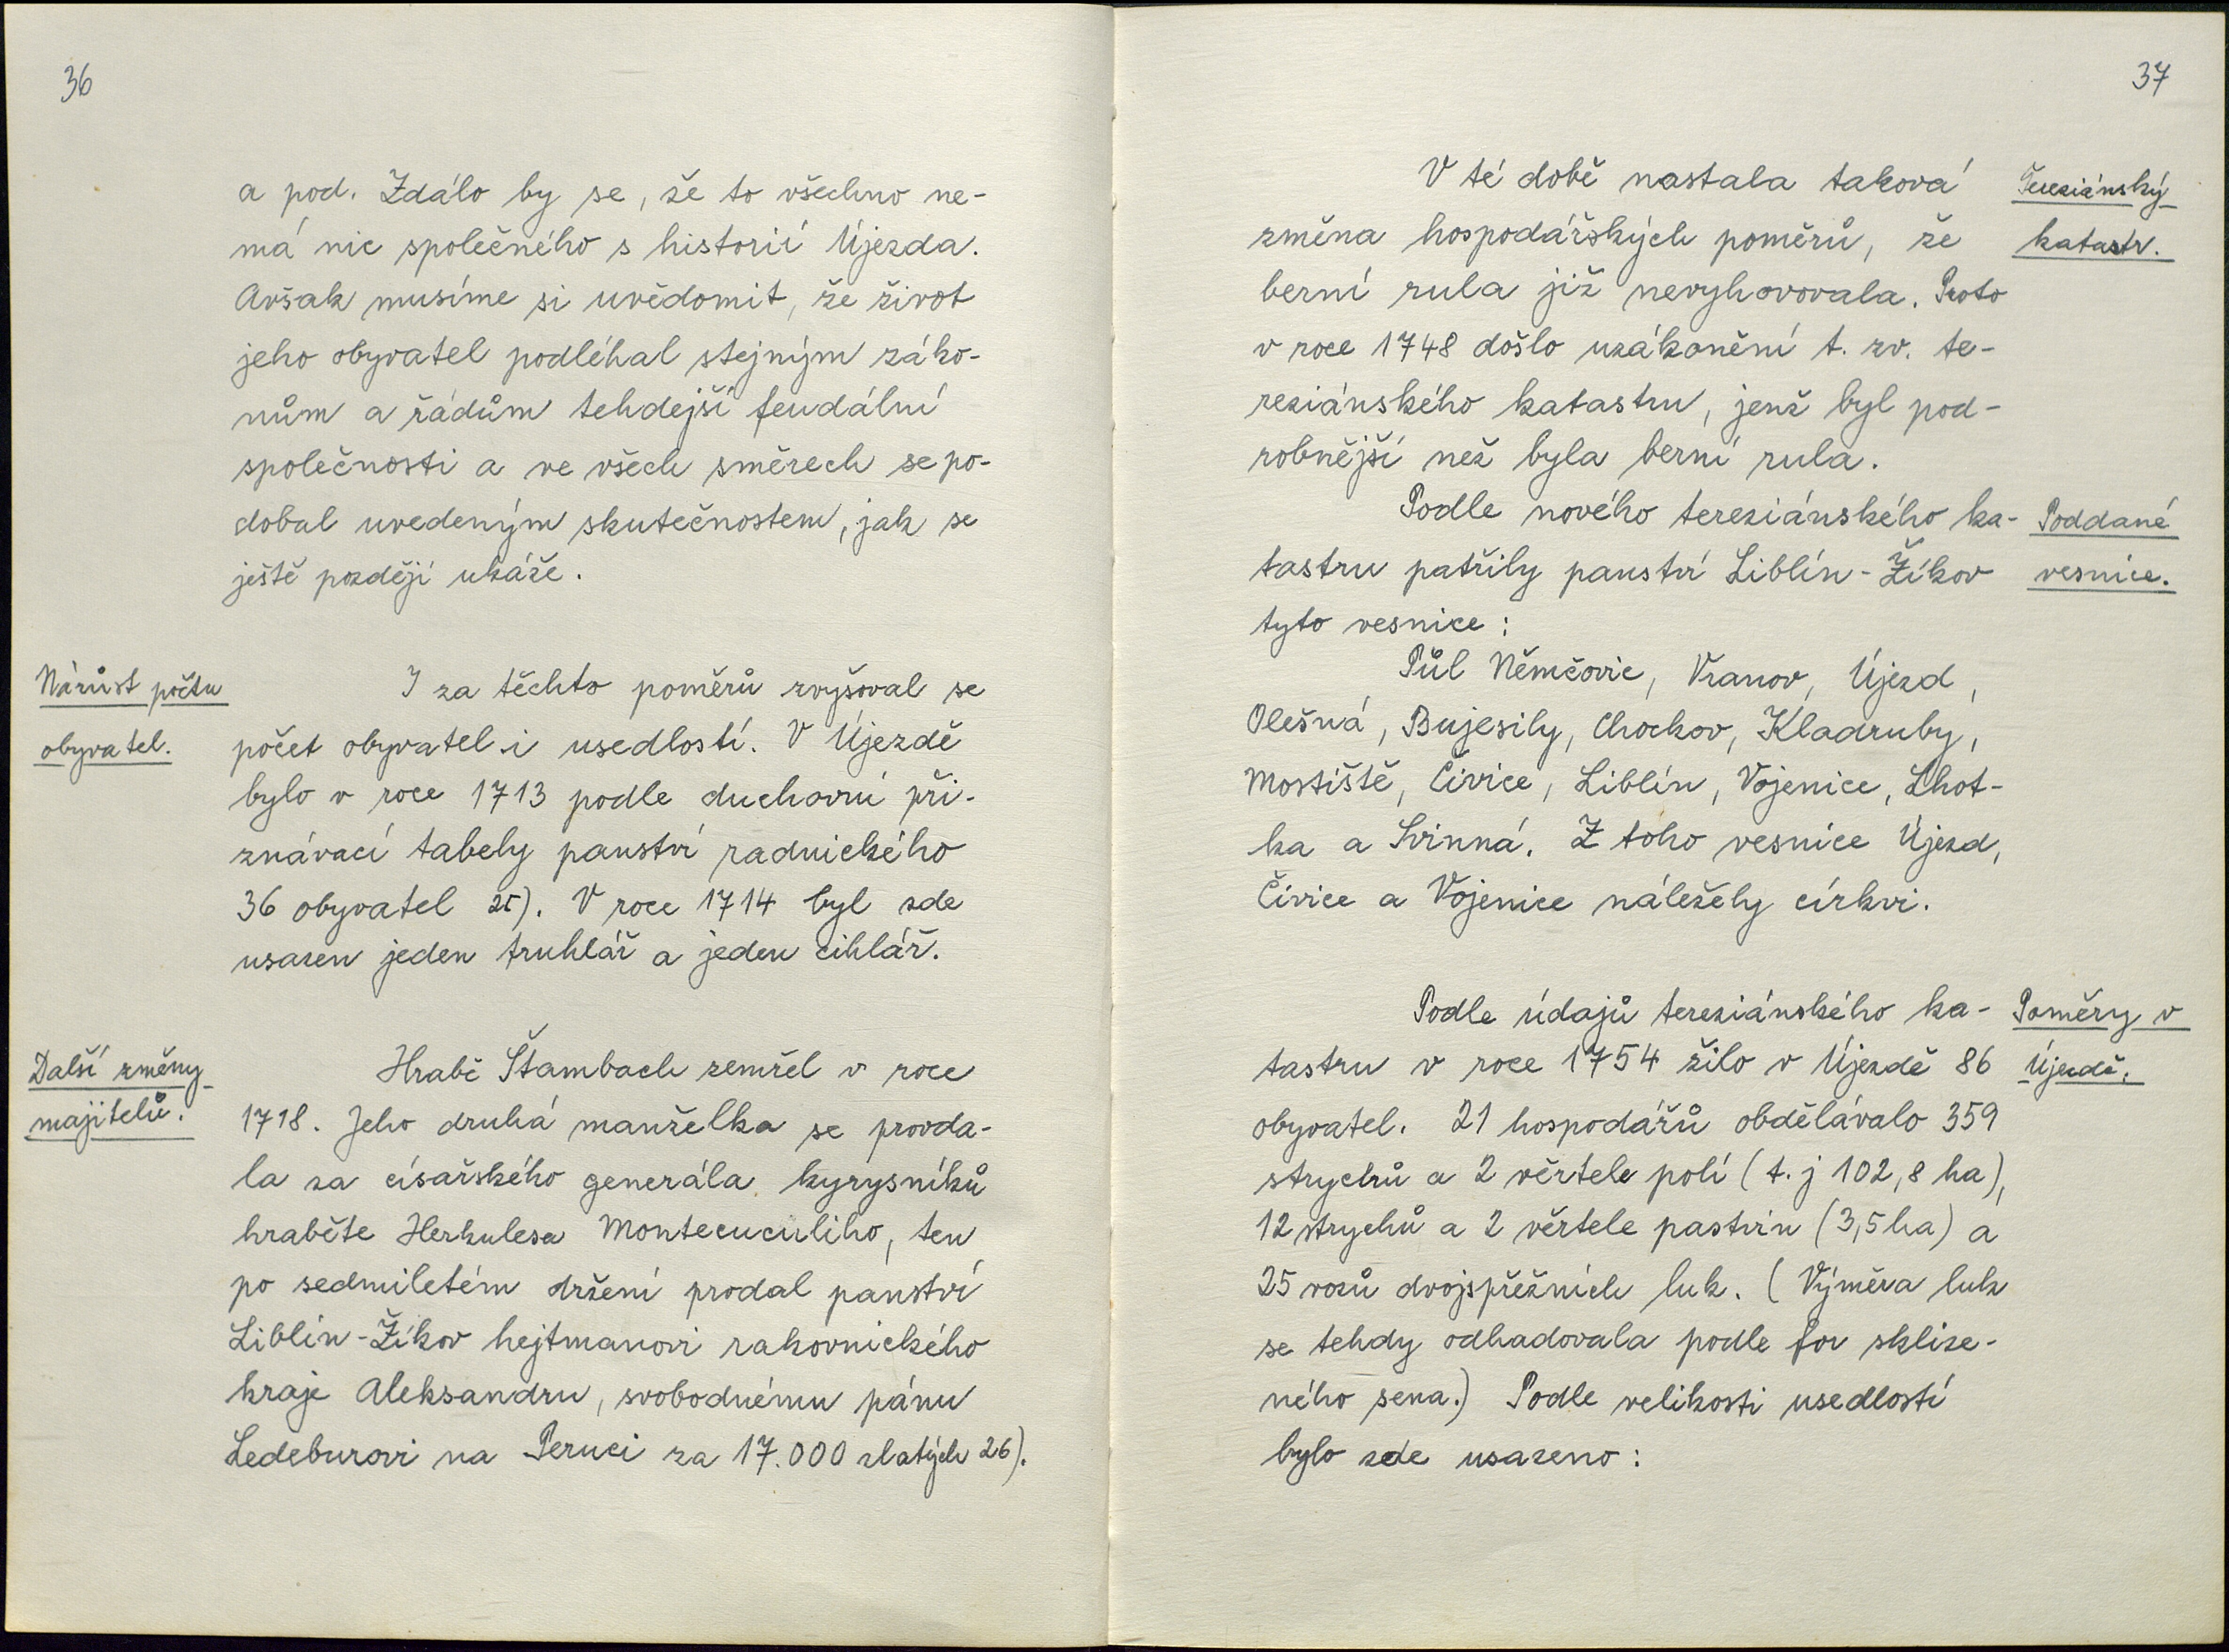 36
a pod. Zdálo by se, že to všechno ne-
má nic společného s historií Újezda.
Avšak musíme si uvědomit, že život
jeho obyvatel podléhal stejným záko-
nům a řádům tehdejší feudální
společnosti a ve všech směrech se po-
dobal uvedeným skutečnostem, jak se
ještě později ukáže.
Nárůst počtu
obyvatel.
I za těchto poměrů zvyšoval se
počet obyvatel i usedlostí. V Újezdě
bylo v roce 1713 podle duchovní při-
znávací tabely panství radnického
36 obyvatel 25). V roce 1714 byl zde
usazen jeden truhlář a jeden cihlář.
Další změny
majitelů.
Hrabě Štambach zemřel v roce
1718. Jeho druhá manželka se provda-
la za císařského generála kyrysníků
hraběte Herkulesa Montecuculiho, ten
po sedmiletém držení prodal panství
Liblín-Žíkov hejtmanovi rakovnického
kraje Aleksandru, svobodnému pánu
Ledeburovi na Peruci za 17.000 zlatých 26).
37
V té době nastala taková
změna hospodářských poměrů, že
berní rula již nevyhovovala. Proto
v roce 1748 došlo uzákonění t. zv. te-
reziánského katastru, jenž byl pod-
robnější než byla berní rula.
Tereziánský
katastr.
Podle nového tereziánského ka-
tastru patřily panství Liblín-Žíkov
tyto vesnice:
Poddané
vesnice.
Půl Němčovic, Vranov, Újezd,
Olešná, Bujesily, Chockov, Kladruby,
Mostiště, Čivice, Liblín, Vojenice, Lhot-
ka a Svinná. Z toho vesnice Újezd,
Čivice a Vojenice náležely církvi.
Podle údajů tereziánského ka-
tastru v roce 1754 žilo v Újezdě 86
obyvatel. 21 hospodářů obdělávalo 359
strychů a 2 věrtele polí (t. j 102,8 ha),
12 strychů a 2 věrtele pastvin (3,5 ha) a
25 vozů dvojspřežních luk. (Výměra luk
se tehdy odhadovala podle for sklize-
ného sena.) Podle velikosti usedlostí
bylo zde usazeno:
Poměry v
Újezdě.